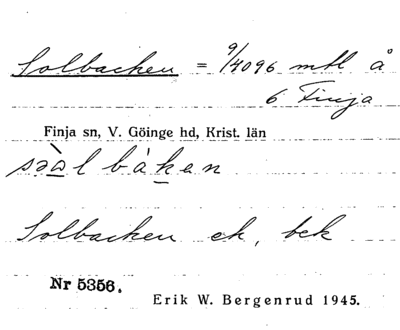 Solbacken = 9/4096 mtl å
6 Finja
Finja sn, V. Göinge hd, Krist. län
sə̀ɑl bákan
Solbacken ek, bek
Nr 5356.
Erik W. Bergenrud 1945.